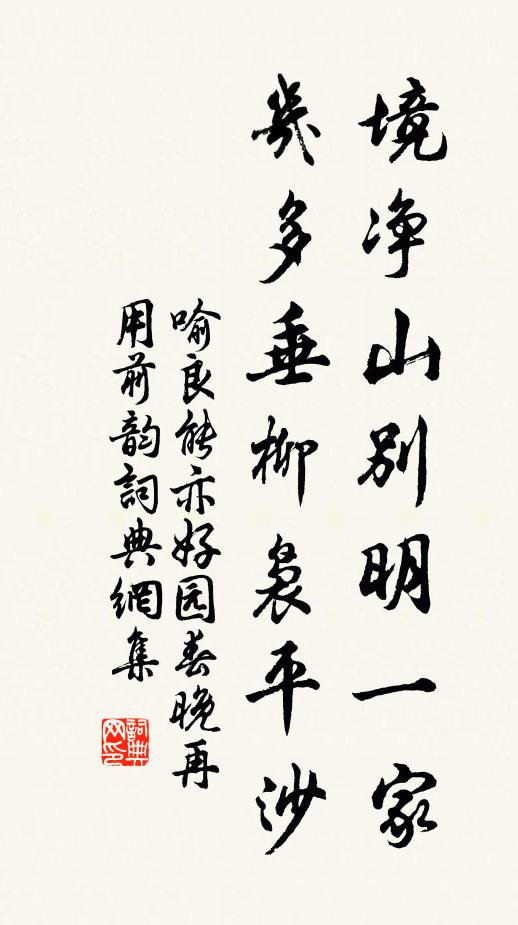 境净山别明一家
几多垂柳袅平沙
喻良能亦好园春晚再
用前韵词典網集
詞典网印